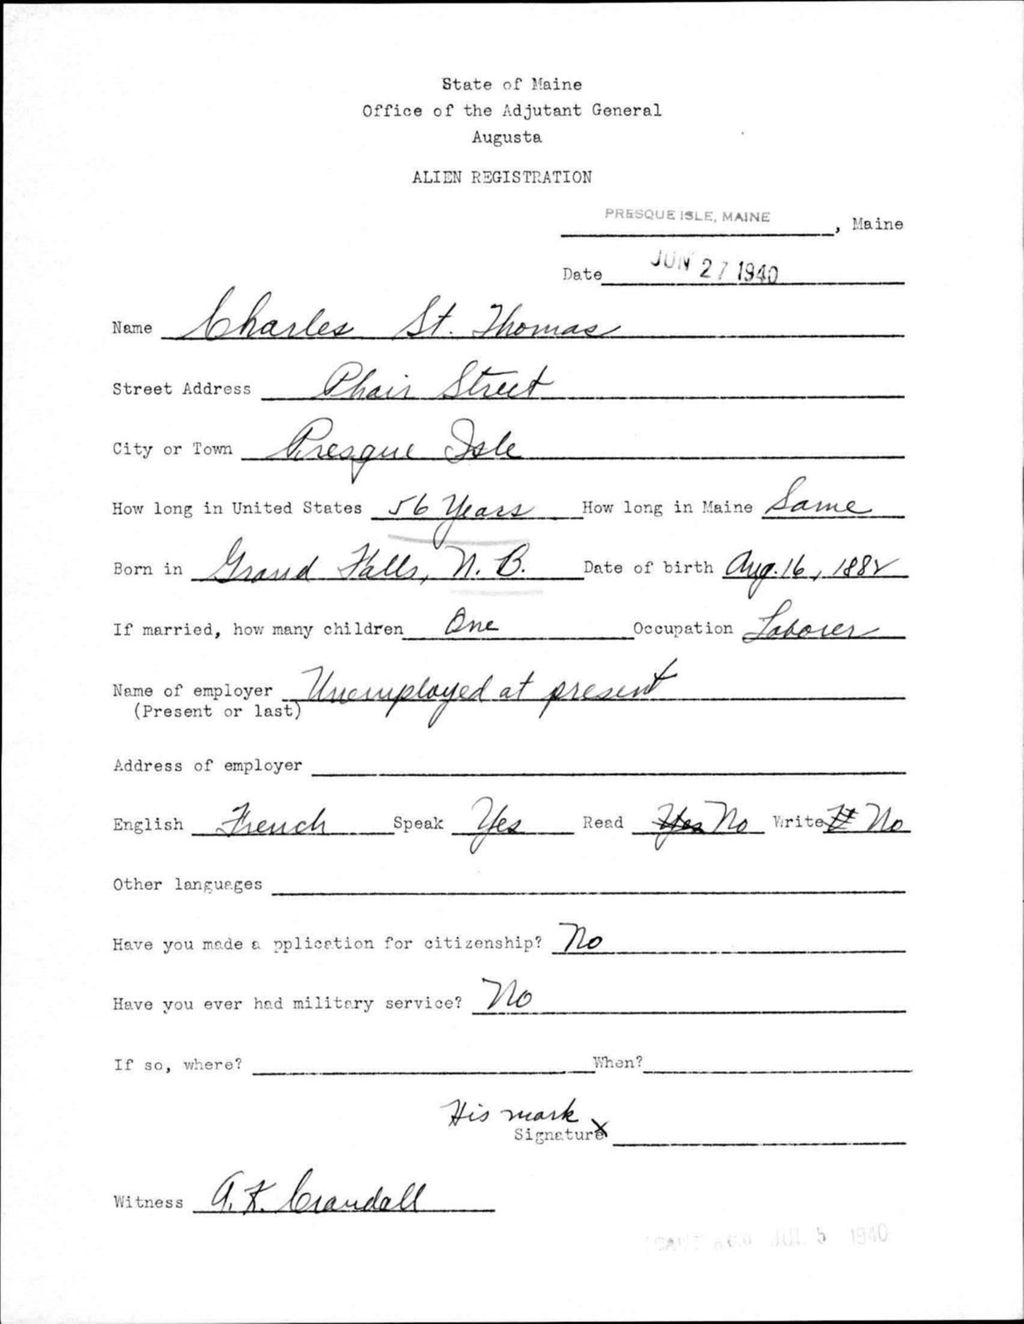 State of Maine
Office of the Adjutant General
Augusta
ALIEN REGISTRATION
PRESQUE ISLE, MAINE, Maine
Date JUN 27 1940
Name Charles St. Thomas
Street Address Phair Street
City or Town Presque Isle
How long in United States 56 Years How long in Maine Same
Born in Grand Falls, N. B. Date of birth Aug. 16, 1882
If married, how many children One Occupation Laborer
Name of employer Unemployed at present
(Present or last)
Address of employer
English French Speak Yes Read Yes No Write No
Other languages
Have you made a pplication for citizenship? No
Have you ever had military service? No
If so, where? When?
His mark
Signature X
Witness A. K. Crandall
JUL 5 1940